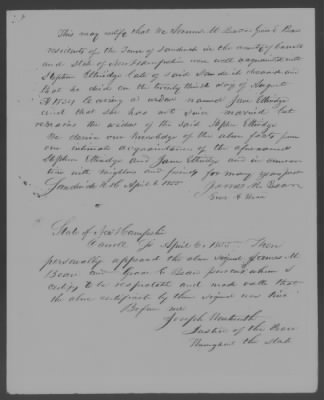 This may certify that We James M Bean & 
residents of the Town of Sandwich in the county of Carroll
and State of New Hampshire were well acquainted with
Stephen Ethridge late of said Sandwich deceased and
that he died on the twenty third day of August
leaving a widow named Jane Ethridge
and that she has not since married but
remains the widow of the said Stephen Ethridge
We derive our knowledge of the above facts from
our intimate acquaintance of the aforenamed
Stephen Ethridge and Jane Ethridge and in conversa
tion with neighbors and friends for many years past
Sandwich N H April 6 1855 James M Bean
State of New Hampshire
Carroll Ss April 6 1855 Then
personally appeared the above signed James M
Bean and Bean persons whom I
certify to be respectable and made oath that
the above certificate by them signed was true
Before me
Joseph Wentworth
Justice of the Peace
throughout the State